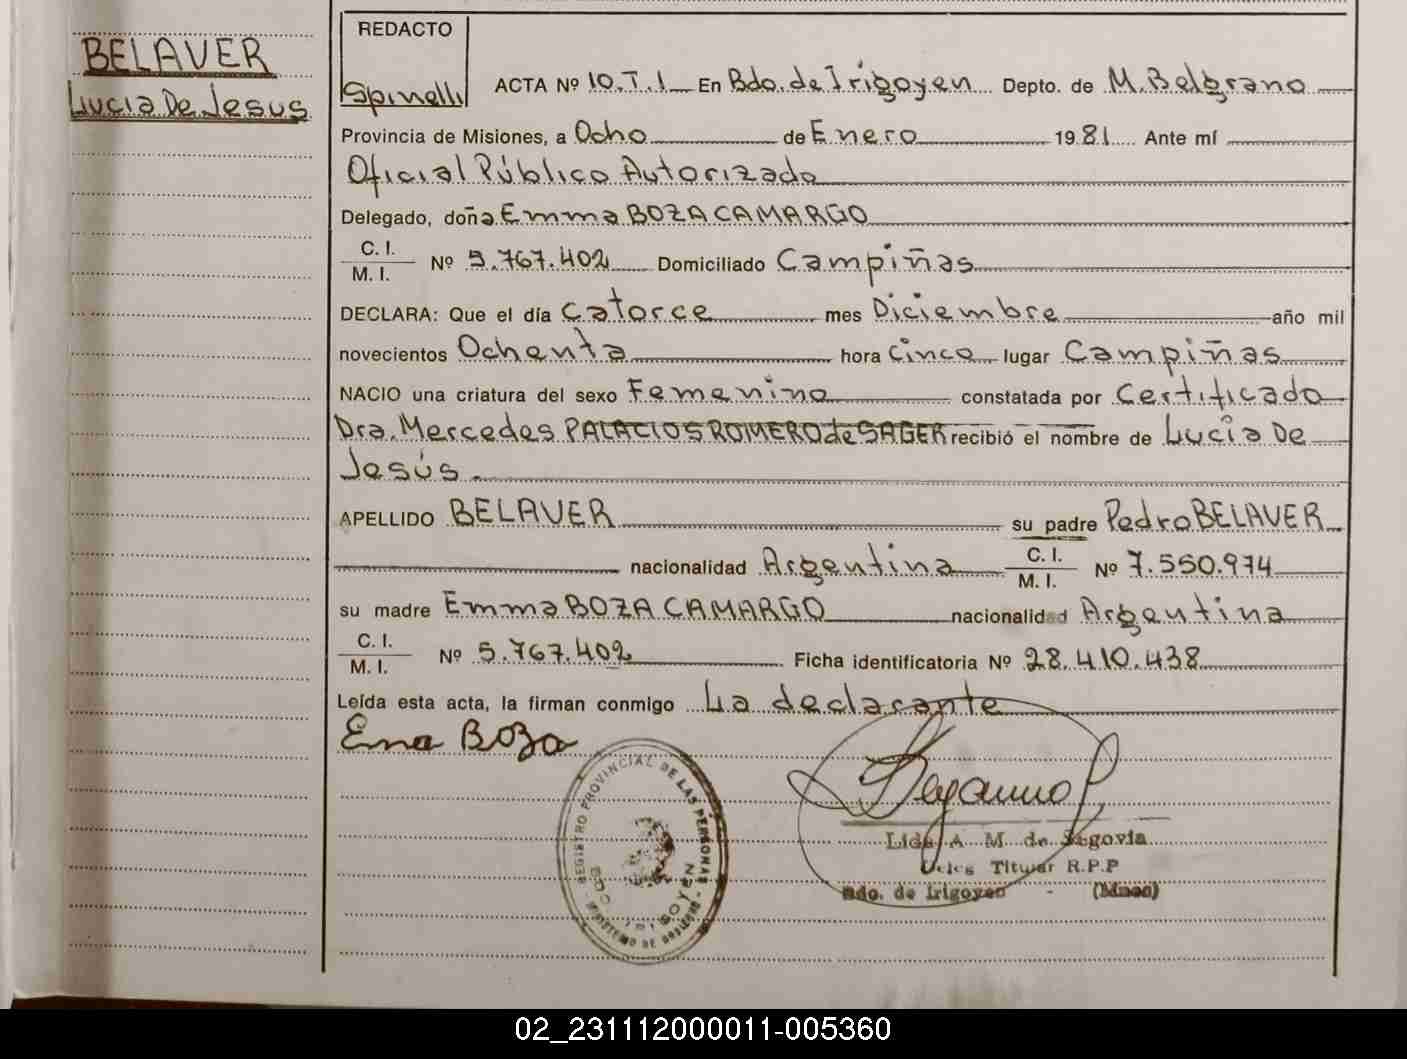 BELAVER
Lucia De Jesus
REDACTO
Spinelli
ACTA Nº 10.T.1 En Bdo. de Irigoyen Depto. de M. Belgrano
Provincia de Misiones, a Ocho de Enero 1981 Ante mí
Oficial Público Autorizado
Delegado, doña Emma BOZA CAMARGO
C. I.
M. I. Nº 5.767.402 Domiciliado Campiñas
DECLARA: Que el día catorce mes Diciembre año mil
novecientos Ochenta hora cinco lugar Campiñas
NACIO una criatura del sexo Femenino constatada por Certificado
Dra. Mercedes PALACIOS ROMERO de SAGER recibió el nombre de Lucia De
Jesús.
APELLIDO BELAVER su padre Pedro BELAVER
nacionalidad Argentina C. I.
M. I. Nº 7.550.974
su madre Emma BOZA CAMARGO nacionalidad Argentina
C. I.
M. I. Nº 5.767.402 Ficha identificatoria Nº 28.410.438
Leída esta acta, la firman conmigo La declarante
Ema Boza
REGISTRO PROVINCIAL DE LAS PERSONAS
MINISTERIO DE GOBIERNO
IRIGOYEN
Lida A M de Segovia
Titular R.P.P
Bdo. de Irigoyen - (Mnes)
02_231112000011-005360